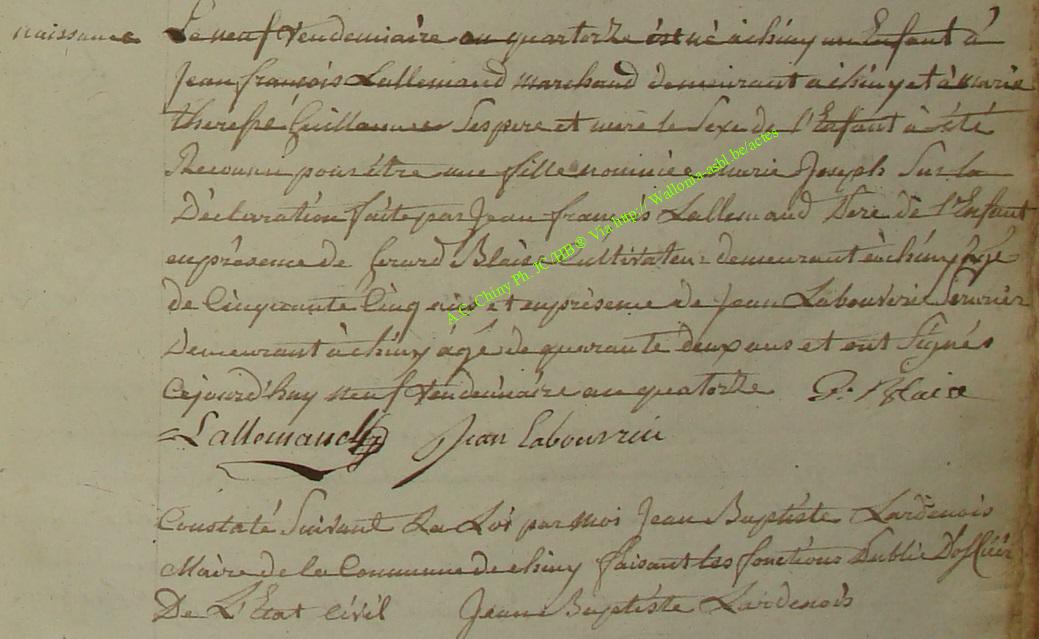 naissance
Le neuf Vendemiaire an quartorze est né a chiny un Enfant à
Jean françois Lallemand marchand demeurant a chiny et à marie
therese Guillaume Ses pere et mere le Sexe de l'Enfant à été
Reconnu pour être une fille nominée marie Joseph Sur la
Déclaration faite par Jean françois Lallemand Pere de l'Enfant
en présence de Gerard Blaise Cultivateur demeurant à chiny agé
de Cinquante Cinq ans et en présense de Jean Labouverie Serurier
Demeurant à chiny agé de quarante deux ans et ont Signés
cejourd'huy neuf Vendemiaire an quatorze G. Blaise
Lallemand Jean Labouvrie
Constaté Suivant La Loi par moi Jean Baptiste Lardenois
Maire de la Commune de chiny faisant les fonctions Public D'officier
De L'Etat Civil Jean Baptiste Lardenois
A.C. Chiny Ph. JC /HB © Via http:// Wallonia-asbl.be/actes